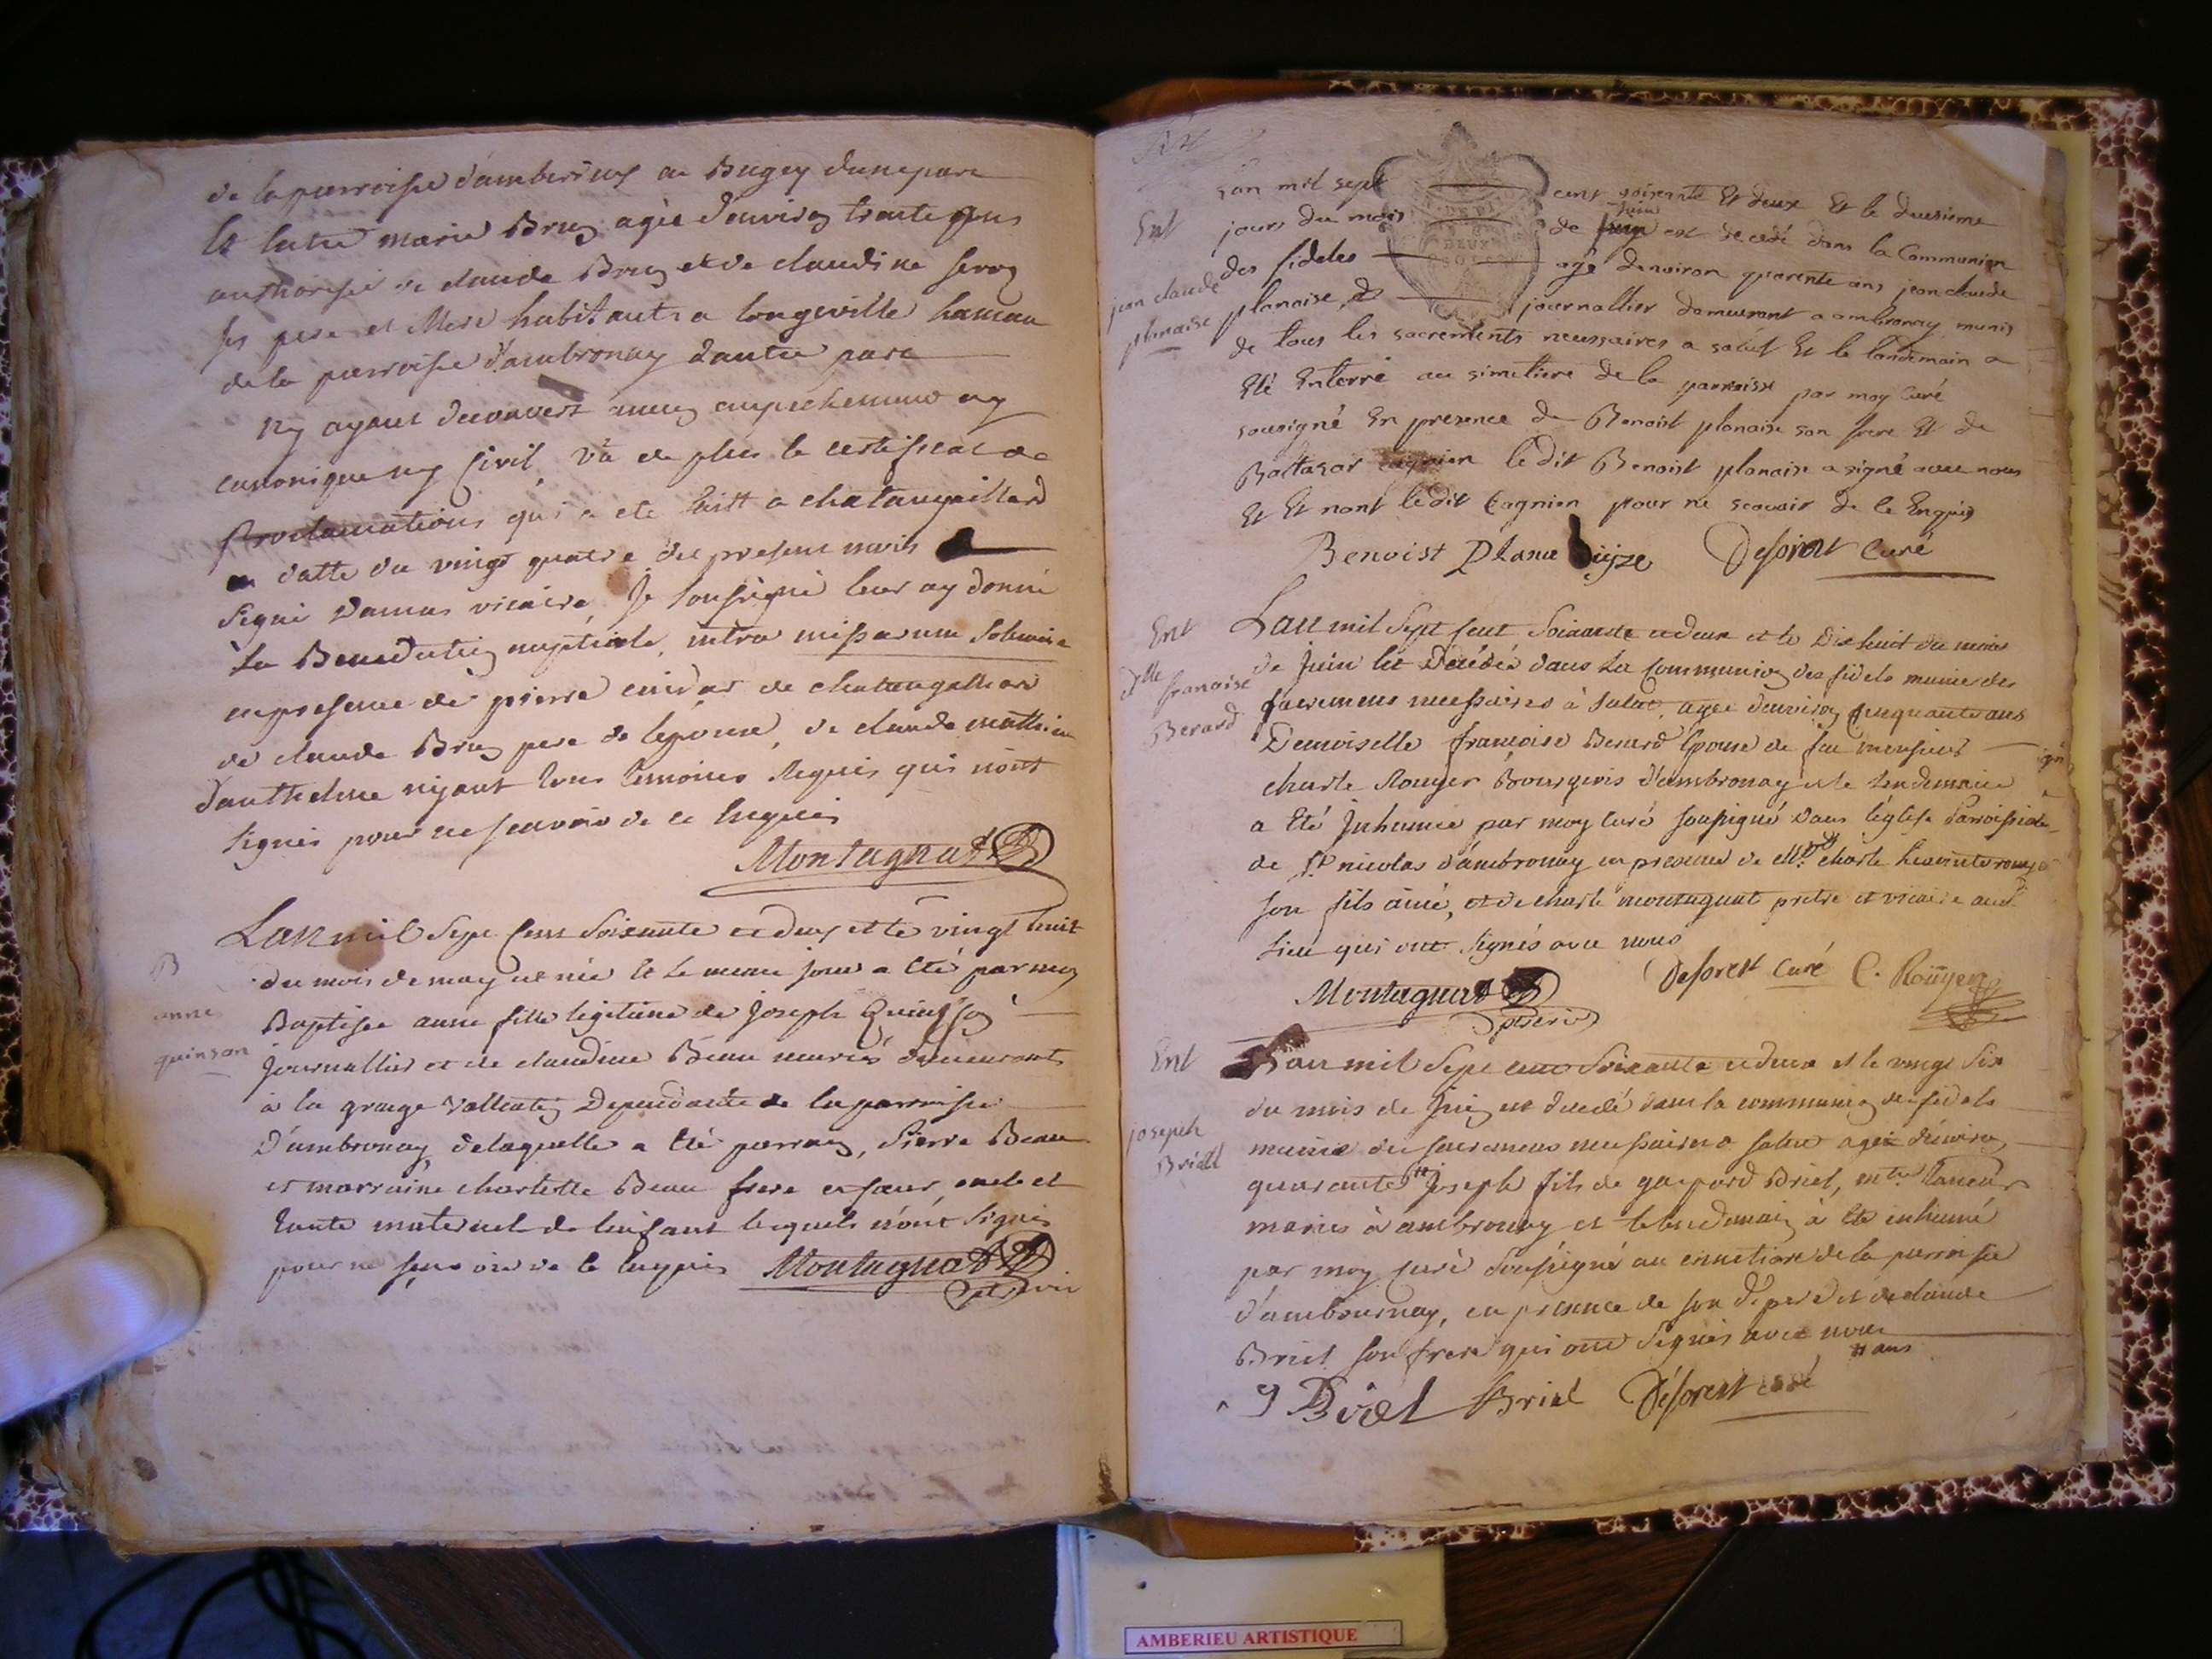 de la parroisse d'amberieux en Bugey dune part
Et Marie Brug agée d'environ trente
authorisée de claude Brug et de claudine
ses pere et Mere habitants a longeville hameau
de la parroisse d'ambronay dautre part
Ny ayant decouvert aucun empechement ny
canonique ny Civil, vû de plus le certificat de
proclamations qui a eté fait a chatangaillard
en datte du vingt quatre du present mois
signé Damas vicaire, Je soussigné leur ay donné
la Benediction nuptiale, intra missarum solemnia
en presence de pierre de chatangaillard
de claude Brug pere de l'epouse, de claude mathieu
tous temoins requis qui n'ont
signés pour ne scavoir de ce Enquis
Montagnat
L'an mil Sept Cent Soixante et deux et le vingt huit
B
du mois de may est née et le meme jour a eté par moy
anne
Baptisée anne fille legitime de Joseph Quinson
quinson
Journallier et de claudine Beau mariés demeurants
à la grange Dependante de la parroisse
D'ambronay de laquelle a eté parrain, Pierre Beau
et marraine charlotte Beau frere et soeur, oncle et
tante maternel de l'enfant lesquels n'ont signés
pour ne scavoir de ce Enquis Montagnat
L'an mil sept cent soixante Et deux Et le deusieme
Ent
jours du mois de juin est decedé dans la Communion
des fideles agé denviron quarente ans jean claude
jean claude
planaise
planaise journallier demeurant a ambronay munis
de tous les sacrements necessaires a salut Et le landemain a
Eté Enterré au simetiere de la parroisse par moy Curé
sousigné En presence de Benoist planaise son frere Et de
Baltasar Cagnien le dit Benoist planaise a signé avec nous
Et Et nont le dit Cagnien pour ne scavoir de ce Enquis
Benoist Deforest Curé
L'an mil Sept Cent Soixante et deux et le Dix huit du mois
Ent
de Juin Est Décédée dans la Communion des fidels munie des
dlle francoise
Berard
sacremens necessaires à salut, agée denviron cinquante ans
Demoiselle francoise Berard Epouse de feu monsieur
charle Rouyer Bourgeois d'ambronay et le lendemain
a Eté Inhumée par moy Curé soussigné dans léglise Parroissiale
de St nicolas d'ambronay en presence de Mr charle
son fils ainé, et de charle montagnat pretre et vicaire aud.
lieu qui ont signés avec nous
Montagnat Deforest Curé C. Rouyer
L'an mil Sept cent Soixante et deux et le vingt Six
Ent
du mois de Juin est decedé dans la communion des fidels
joseph
Briell
munie des sacremens necessaires a salut agé d'environ
quarante # Joseph fils de gaspard Briel, mtre Tanneur
mariés à ambronay et le lendemain à Eté inhumé
par moy curé soussigné au cimetiere de la parroisse
d'ambournay, en presence de son d. pere et de claude
Briel son frere qui ont signés avec nous
# ans
g Briel Briel Deforest curé
AMBERIEU ARTISTIQUE